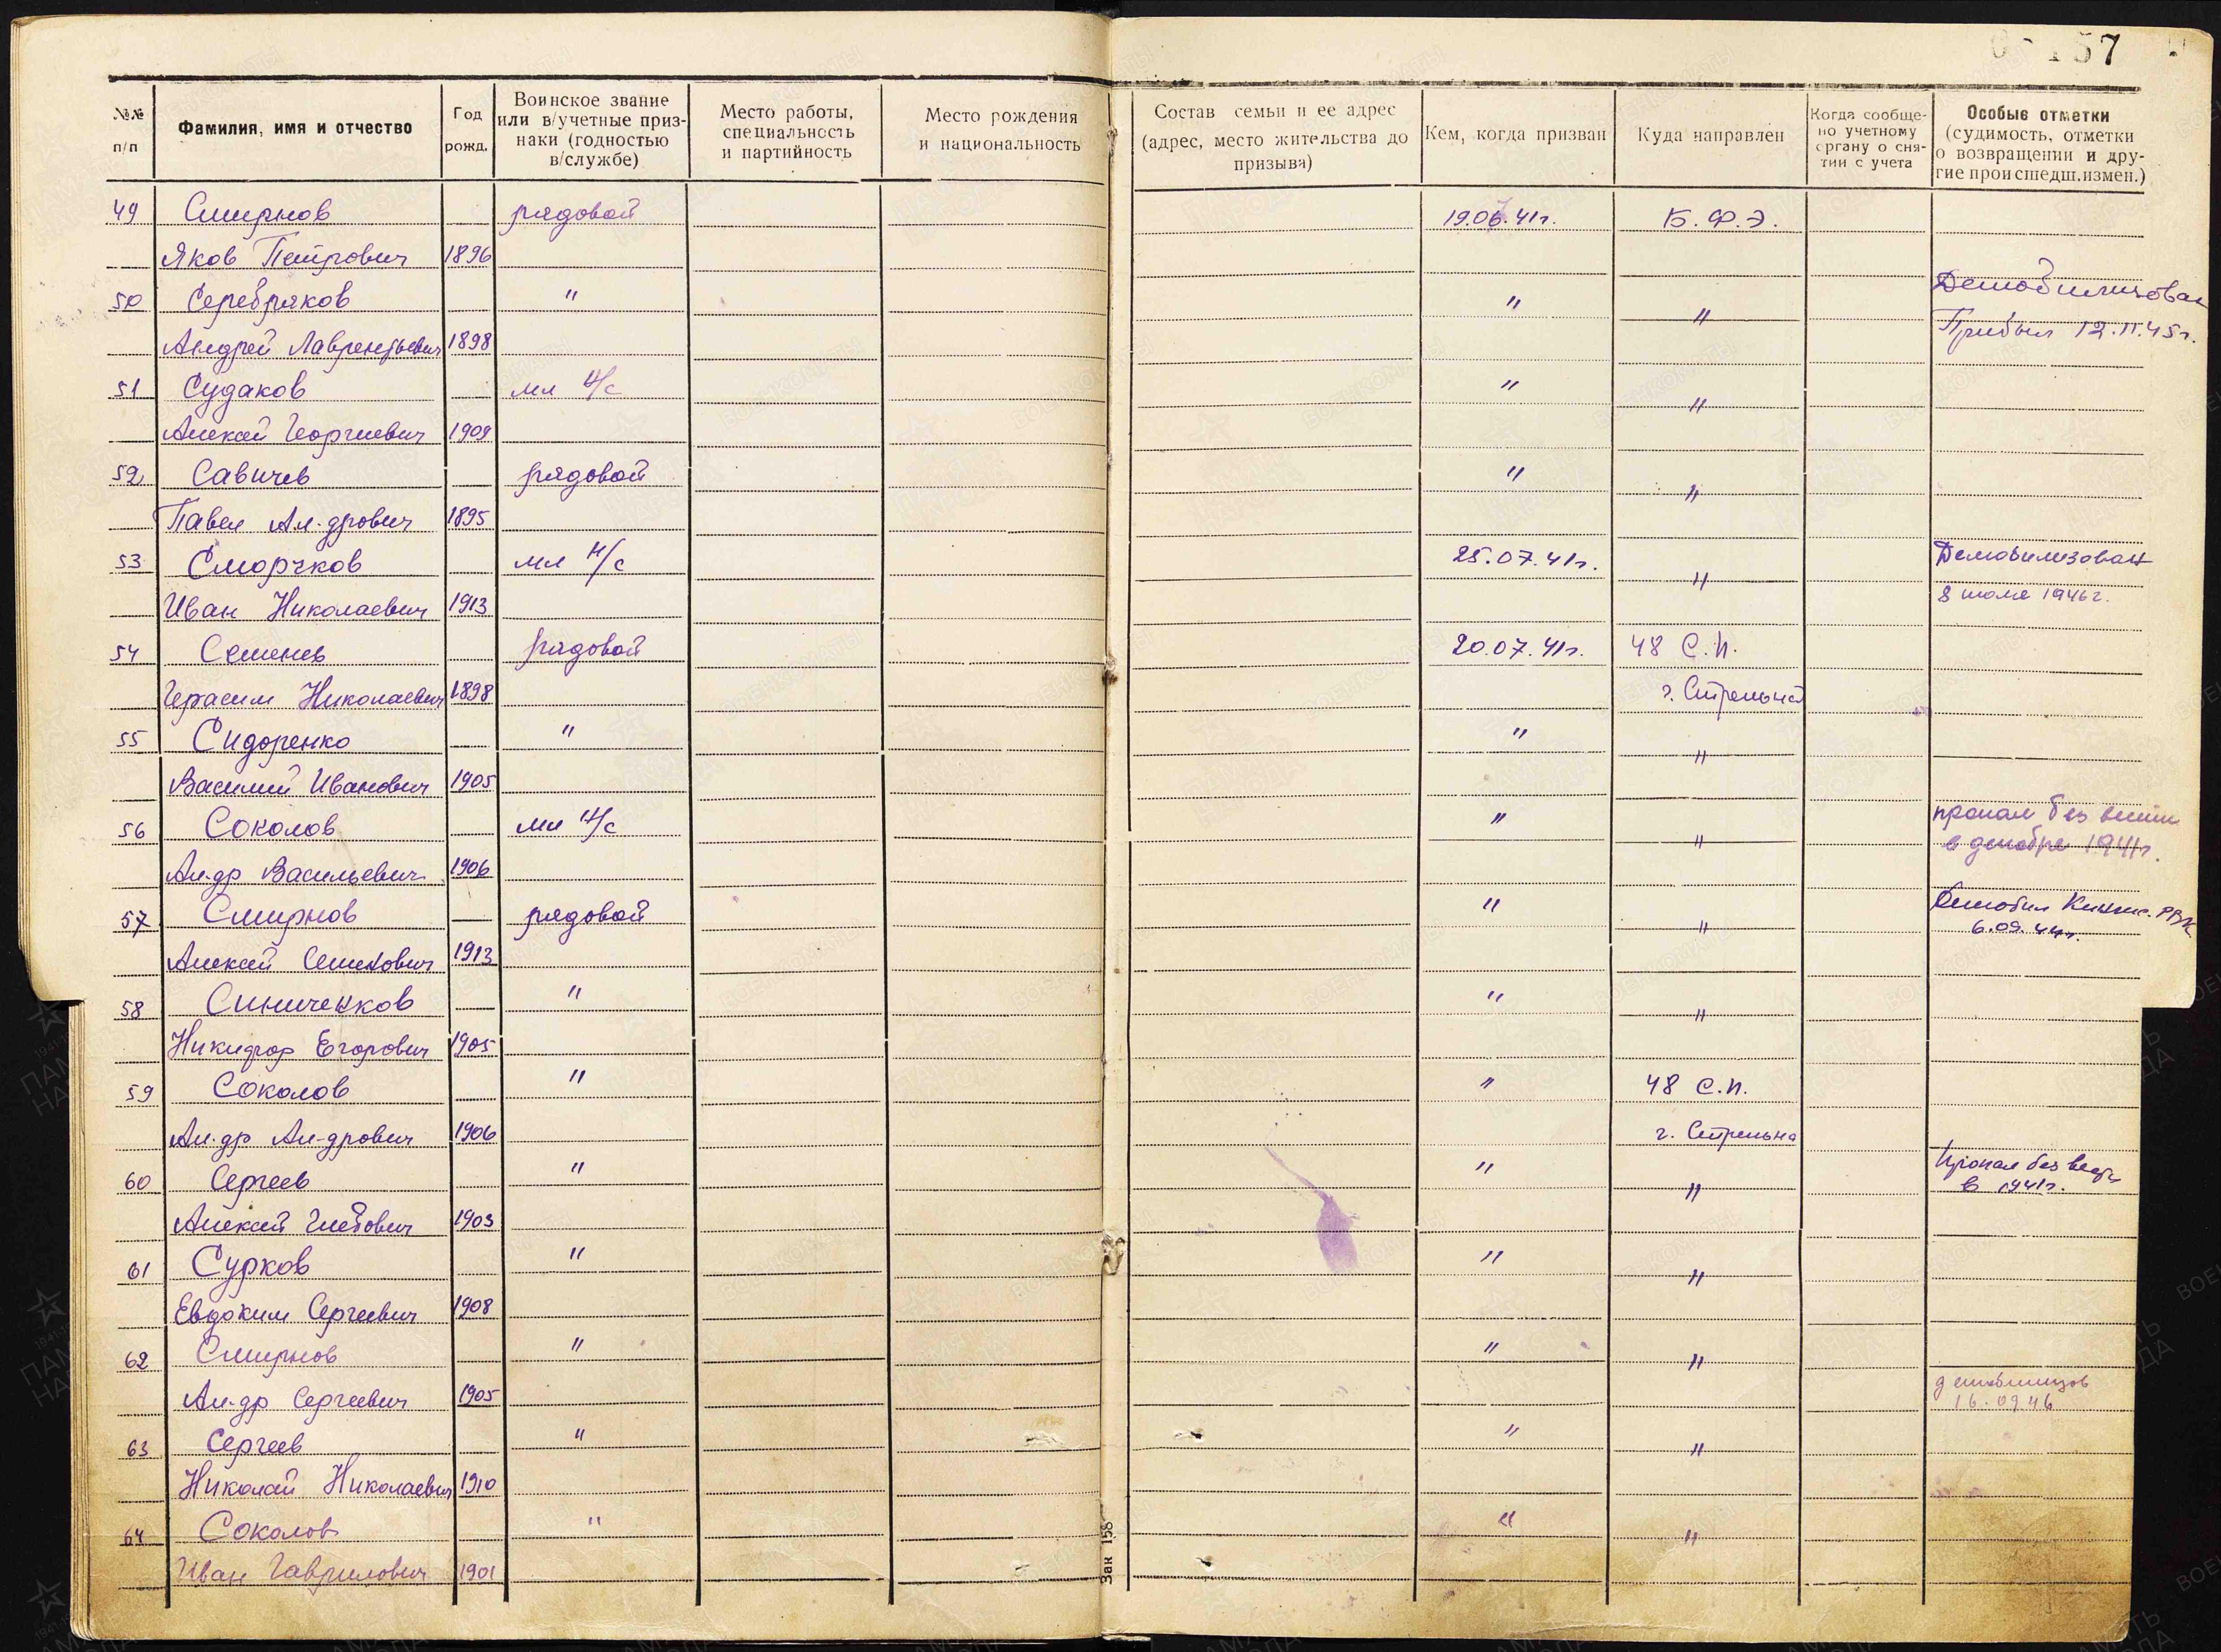 157
№№ п/п
Фамилия, имя и отчество
Год рожд.
Воинское звание или в/учетные приз-наки (годностью в/службе)
Место работы, специальность и партийность
Место рождения и национальность
Состав семьи и ее адрес (адрес, место жительства до призыва)
Кем, когда призван
Куда направлен
Когда сообще-но учетному органу о сня-тии с учета
Особые отметки (судимость, отметки о возвращении и дру-гие происшедш.измен.)
49 Смирнов рядовой 19.06.41г. К.Ф.Э.
Яков Петрович 1896
50 Серебряков " " " Демобилизован
Андрей Лаврентьевич 1898 Прибыл 12.11.45г.
51 Судаков мл н/с " "
Алексей Георгиевич 1909
52 Савичев рядовой " "
Павел Ал-дрович 1895
53 Сморчков мл н/с 25.07.41г. " Демобилизован
Иван Николаевич 1913 8 1946г.
54 Семенев рядовой 20.07.41г. 48 С.П.
Герасим Николаевич 1898 г. Стрельна
55 Сидоренко " " "
Василий Иванович 1905
56 Соколов мл н/с " " пропал без вести
Ал-др Васильевич 1906 в декабре 1941г.
57 Смирнов рядовой " " РВК
Алексей Семенович 1913 6.09.44г.
58 Синиченков " " "
Никифор Егорович 1905
59 Соколов " " 48 С.П.
Ал-др Ал-дрович 1906 г. Стрельна
60 Сергеев " " " Пропал без вести
в 1941г.
Алексей Глебович 1903
61 Сурков " " "
Евдоким Сергеевич 1908
62 Смирнов " " "
Ал-др Сергеевич 1905 демобилизов
16.09.46
63 Сергеев " " "
Николай Николаевич 1910
64 Соколов " " "
Иван Гаврилович 1901
Зак 158